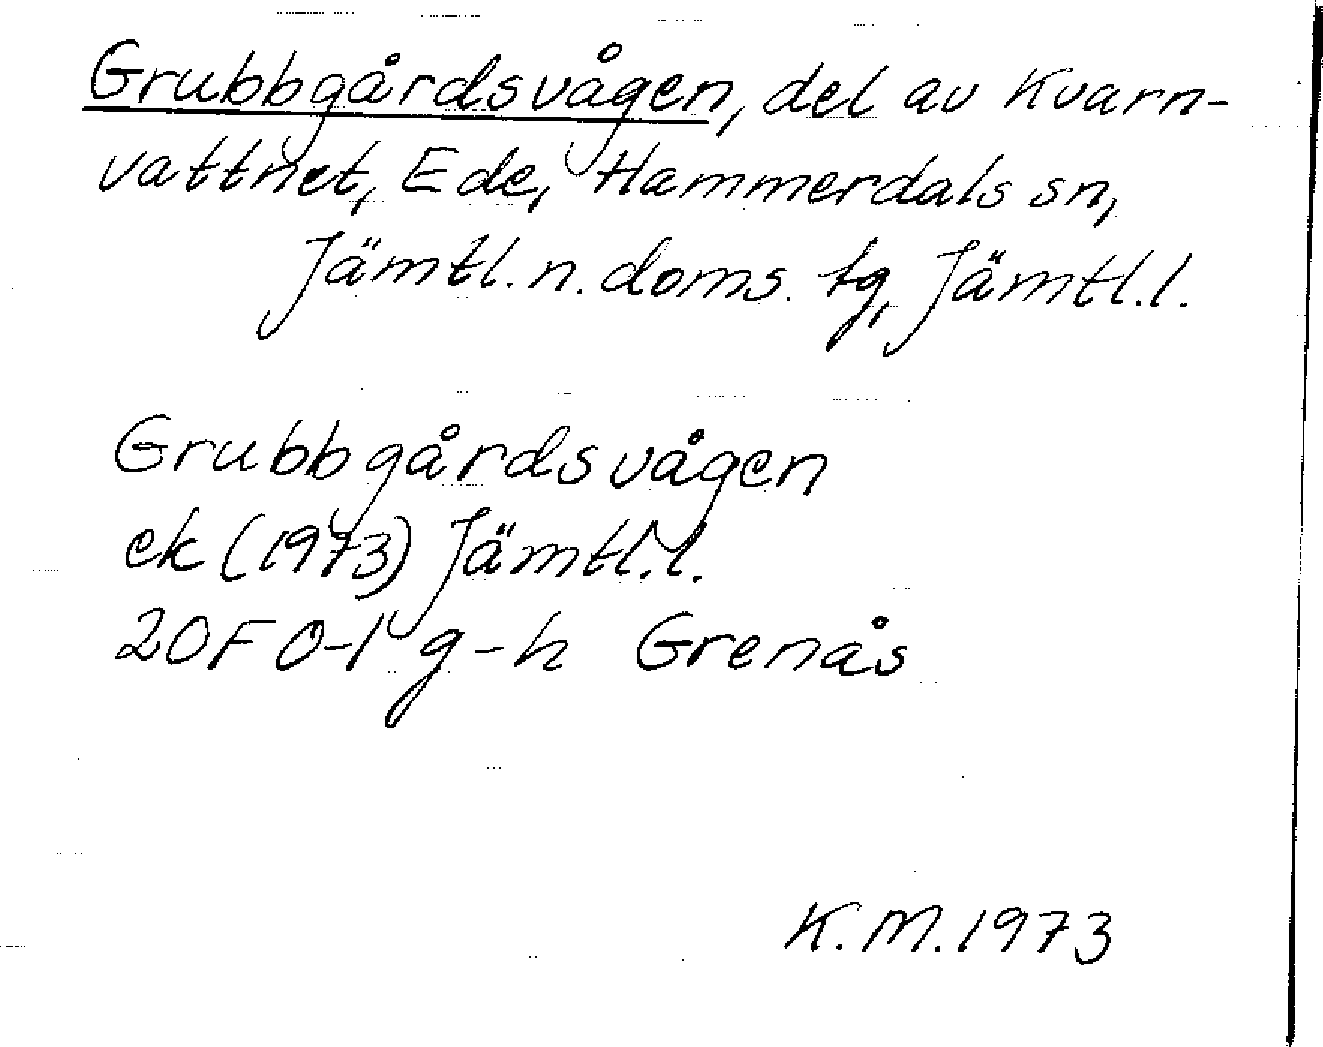 Grubbgårdsvågen, del av Kvarn-
vattnet, Ede, Hammerdals sn,
Jämtl. n. doms. tg, Jämtl. l.
Grubbgårdsvågen
ek (1973) Jämtl. l.
20F 0-1 g-h Grenås
K. M. 1973